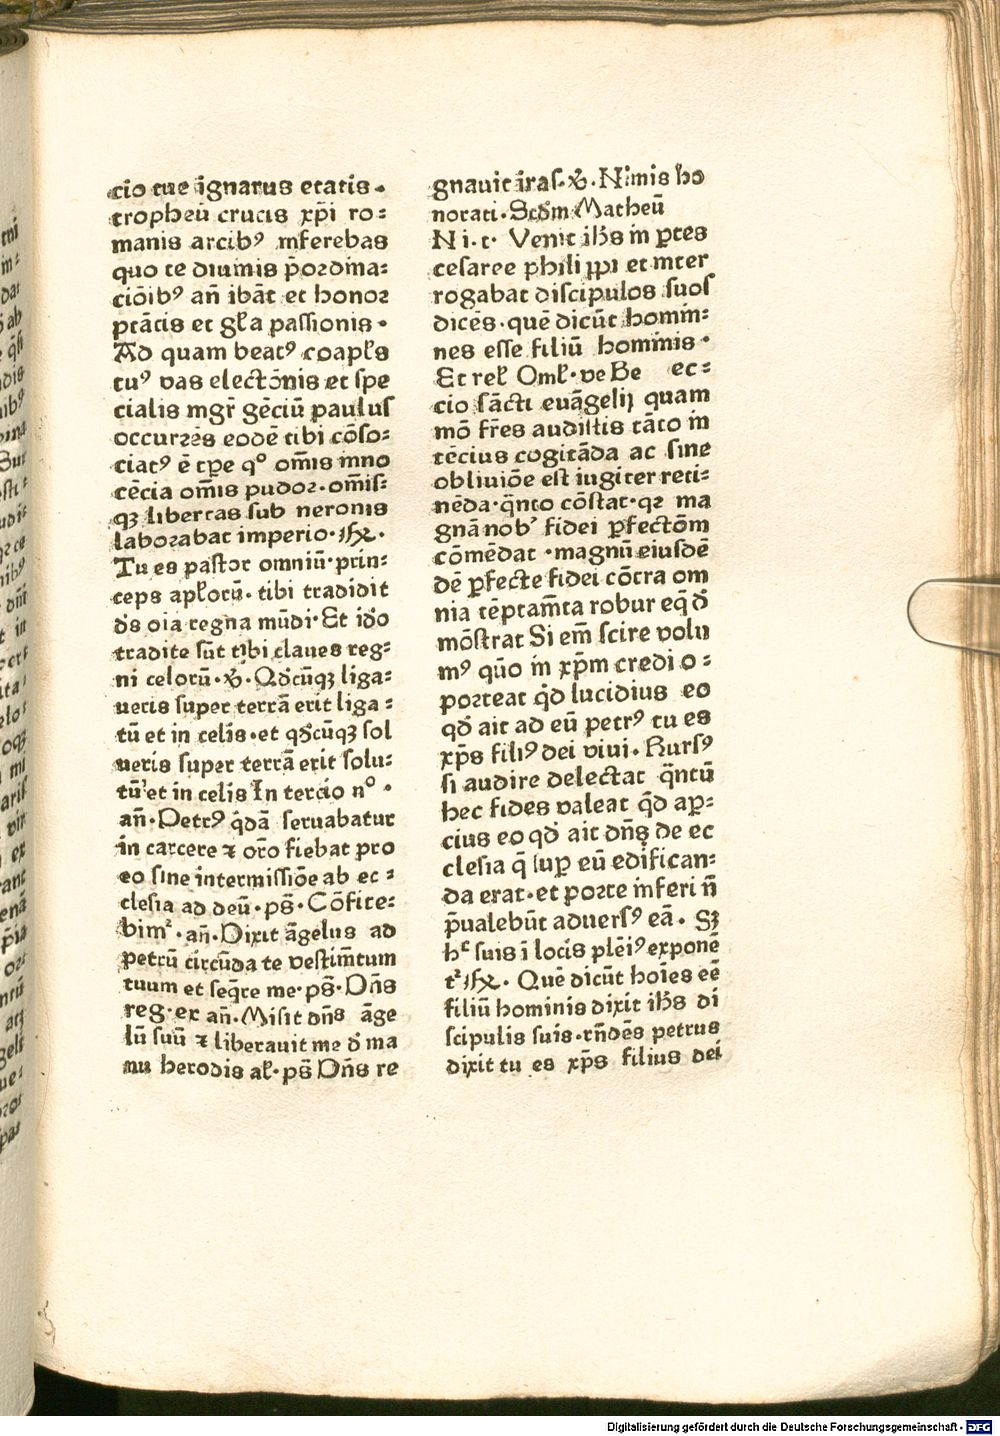 cio tue ignarus etatis·
tropheū crucis xp̄i ro:
manis arcibꝰ inferebas
quo te diuinis p̄ordina:
ciōibꝰ añ ibāt et honor
ptātis et gl̄a passionis·
Ad quam beatꝰ coapl̄s
tuꝰ vas electōnis et spe
cialis mgr̄ gēciū paulus
occurrēs eodē tibi cōso:
ciatꝰ ē tp̄e qᵒ om̄is inno
cēcia om̄is pudor·om̄is:
qꝫ libertas sub neronis
laborabat imperio·
Tu es pastor omniū·prin:
ceps apl̄orū·tibi tradidit
ds̄ oīa regna mūdi·Et iđo
tradite sūt tibi claues reg:
ni celorū·℣·Qđcūqꝫ liga:
ueris super terrā erit liga:
tū et in celis·et qđcūqꝫ sol
ueris super terrā erit solu:
tū et in celis In tercio nᵒ·
añ·Petrꝰ q̄dā seruabatur
in carcere ⁊ orō fiebat pro
eo sine intermissiōe ab ec:
clesia ad deū·ps̄·Cōfite:
bimʳ·añ·Dixit āgelus ad
petrū circūda te vestim̄tum
tuum et seq̄re me·ps̄·Dn̄s
reg·ex añ·Misit dn̄s āge
lū suū ⁊ liberauit me đ ma
nu herodis al̄·ps̄ Dn̄s re
gnauit iras·℣·Nimis ho
norati·Scđm Matheū
N i·t· Venit ih̄s in ꝑtes
cesaree philippi et inter
rogabat discipulos suos
dicēs·quē dicūt homin:
nes esse filiū hominis·
Et rel̄ Oml̄·ve Be ec:
cio sācti euāgelij quam
mō fr̄es audistis tāto in
tēcius cogitāda ac sine
obliuiōe est iugiter reti:
nēda·q̄nto cōstat·qꝛ ma
gnā nobʼ fidei ꝑfectōm
cōmēdat·magnū eiusdē
dē ꝑfecte fidei cōtra om
nia tēptam̄ta robur eq̄ đ
mōstrat Si em̄ scire volu
mꝰ qūo in xp̄m credi o:
porteat q̄d lucidius eo
qđ ait ad eū petrꝰ tu es
xp̄s filiꝰ dei viui·Rursꝰ
si audire delectat q̄ntū
hec fides valeat q̄d aꝑ:
cius eo qđ ait dn̄s de ec
clesia q̄ suꝑ eū edifican:
da erat·et porte inferi n̄
p̄ualebūt aduersꝰ eā· Sꝫ
hᶜ suis ī locis plēiꝰ exponē
tʳ · Quē dicūt hoīes eē
filiū hominis dixit ih̄s di
scipulis suis·rn̄dēs petrus
dixit tu es xp̄s filius dei
Digitalisierung gefördert durch die Deutsche Forschungsgemeinschaft - DFG